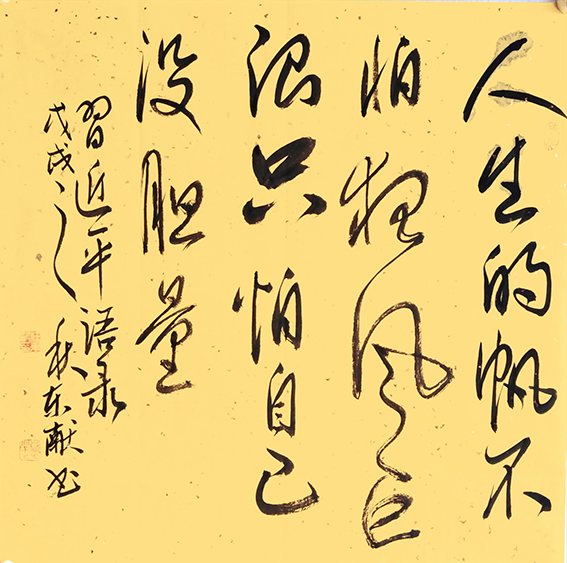 人生的帆不
怕狂风巨
浪只怕自己
没胆量
習近平语录
戊戌之秋东献书